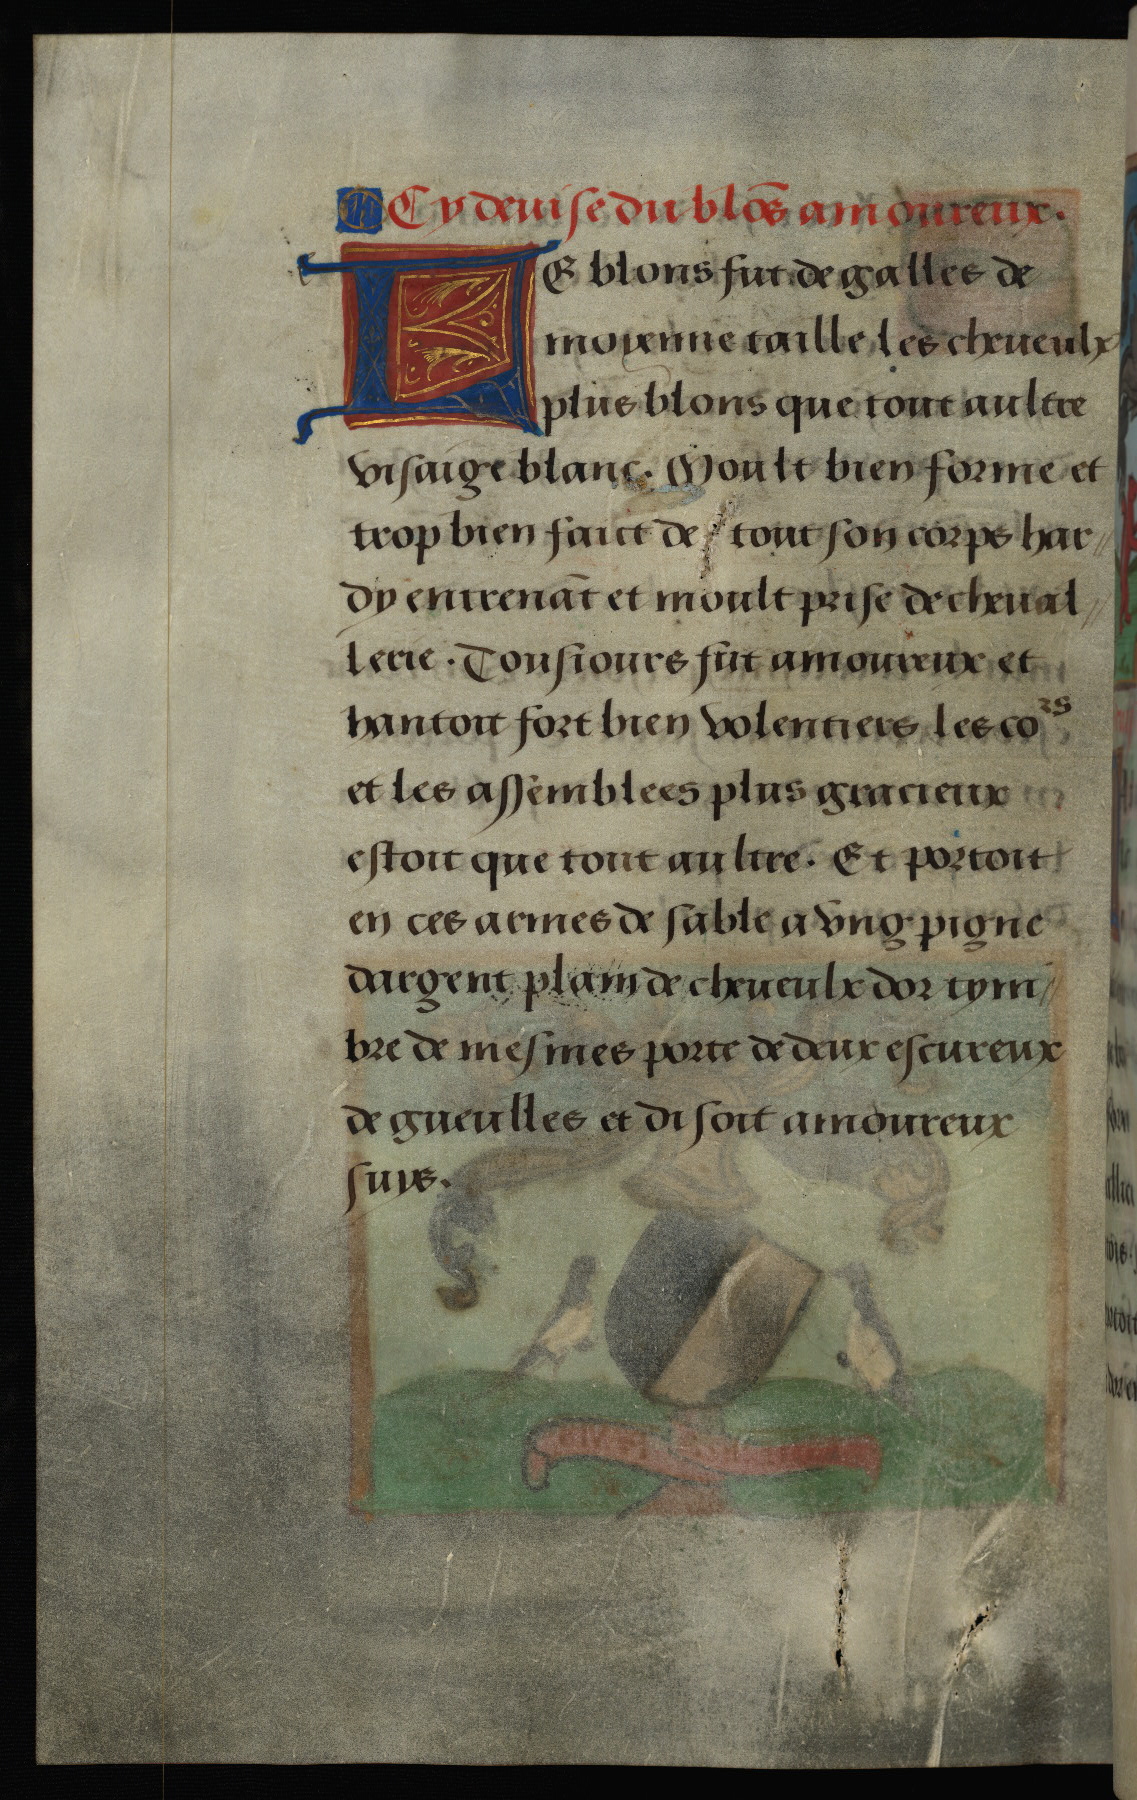 Cy deuise du blōs amoureux.
Le blons fut de galles de
moyenne taille les cheueulx
plus blons que tout aultre
visaige blanc. Moult bien forme et
trop bien faict de tout son corps har//
dy entrenāt et moult prise de cheual//
lerie. Tousiours fut amoureux et
hantoit fort bien volentiers les cors
et les assemblees plus gracieux
estoit que tout aultre. Et portoit
en ces armes de sable a vng pigne
dargent plain de cheueulx dor tym//
bre de mesmes porte de deux escureux
de gueulles et disoit amoureux
suys.